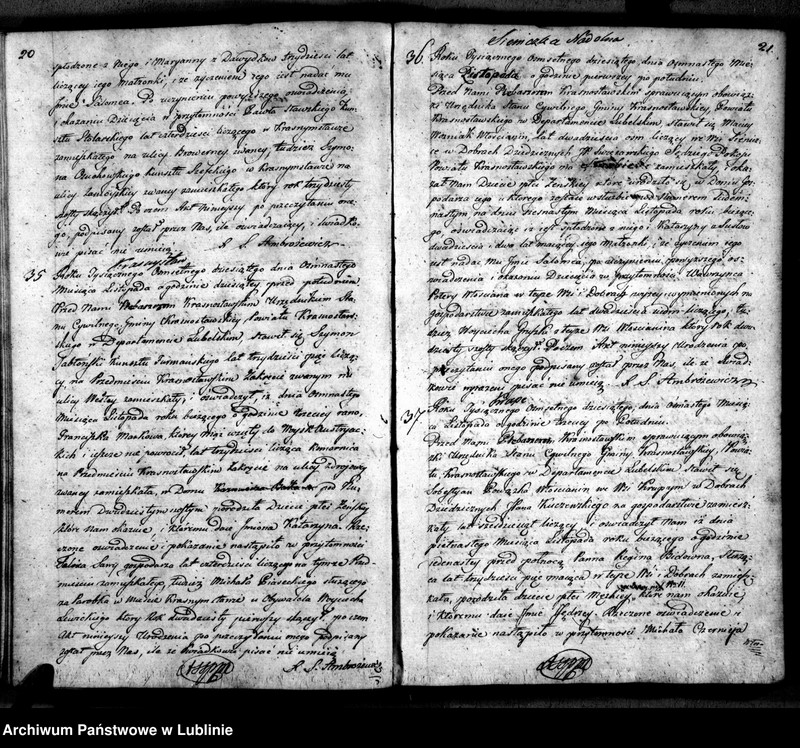 20
spłodzone z Niego i Maryanny z Dawydków trzydzieści lat
liczącej iego małżonki, i że życzeniem iego iest nadać mu
Imie Salomea. Po uczynieniu powyższego oświadczenia
i okazaniu Dziecięcia w przytomności Pawła Stawskiego Kun
sztu Stolarskiego lat czterdzieści liczącego w Krasnymstawie
zamieszkałego na ulicy Browerney zwaney, tudzież Szymo
na kunsztu Szefskiego w Krasnymstawie na
ulicy zwaney zamieszkałego który rok trzydziesty
szósty skączył. Po czem Akt niniejszy po przeczytaniu one
go, podpisany został przez Nas, ile oświadczaiący, i świadko
wie pisać nie umieią.
X. S. Ambrożewicz
Krasnystaw
35 Roku Tysiącznego Osmsetnego dziesiątego dnia Osmnastego
Miesiąca Listopada o godzinie dziesiątey przed południem
Przed Nami Krasnostawskim Urzędnikiem Sta
nu Cywilnego, Gminy Krasnostawskiey, Powiatu Krasnostaw
skiego w Departamencie Lubelskim, stawił się Szymon
Jabłoński Kunsztu Furmańskiego lat trzydzieści pięć liczą
cy na Przedmieściu Krasnostawskim Zakręcie zwanym na
ulicy zamieszkały, i oświadczył, iż dnia Osmnastego
Miesiąca Listopada roku bieżącego o godzinie trzeciey rano,
Franciszka Markowa, ktorey mąż wzięty do Woysk Austryac
kich i ieszcze nie powrócił lat trzydzieści licząca Komornica
na Przedmieściu Krasnostawskim Zakręcie na ulicy
zwaney zamieszkała, w Domu pod Nu
merem Dwudziestym szóstym porodziła Dziecie płci Żeńskiey
które nam okazuie i któremu daie Imiona Katarzyna. Rze
czone oświadczenie i pokazanie nastąpiło w przytomności
gospodarza lat czterdzieści liczącego na tymże Przed
mieściu zamieszkałego, tudzież Michała Piaseckiego służącego
za Parobka w Mieście Krasnymstawie u Obywatela Woyciecha
który Rok dwudziesty pierwszy skączył, po czem
Akt niniejszy Urodzenia po przeczytaniu onego podpisany
został przez Nas, ile że Świadkowie pisać nie umieią
X. S. Ambrożewicz
21.
Siennicka Nadolna
36 Roku Tysiącznego Osmsetnego dziesiątego dnia Osmnastego Mie
siąca Listopada o godzinie pierwszey po południu.
Przed Nami Krasnostawskim sprawuiącym obowiąz
ki Urzędnika Stanu Cywilnego, Gminy Krasnostawskiey, Powiatu
Krasnostawskiego w Departamencie Lubelskim Stawił się Maciey
Woźniak Włościanin, lat dwadzieścia osm liczący we Wsi Sienni
cy w Dobrach Dziedzicznych JW Suchodolskiego Sędziego Pokoju
Powiatu Krasnostawskiego na zamieszkały, i oka
zał Nam Dziecie płci Żeńskiey, które urodziło się w Domu Gos
podarza iego u którego zostaie w służbie pod Numerem siedem
nastym na dniu szesnastym Miesiąca Listopada roku bieżące
go, oświadczaiąc iż iest spłodzone z niego i Katarzyny z Susłów
dwadzieścia i dwa lat maiącey, iego małżonki, i że życzeniem iego
iest nadać mu Imie Salomea, po uczynieniu, powyższego oś
wiadczenia i okazaniu Dziecięcia w przytomności Wawrzyńca
Patery Włościana w teyże Wsi i Dobrach wyżey wymienionych na
gospodarstwie zamieszkałego lat dwadzieścia siedm liczącego, tu
dzież Woyciecha z teyże Wsi Włościanina który Rok dwu
dziesty szósty skączył. Poczem Akt ninieyszy Urodzenia po
przeczytaniu onego podpisany został przez Nas, ile że Świad
kowie wyrażeni pisać nie umieią. X. S. Ambrożewicz
Krupe
37 Roku Tysiącznego Osmsetnego dziesiątego dnia Osmnastego Miesią
ca Listopada o godzinie trzeciey po Południu.
Przed Nami Plebanem Krasnostawskim sprawuiącym obowiąz
ki Urzędnika Stanu Cywilnego Gminy Krasnostawskiey, Powia
tu Krasnostawskiego w Departamencie Lubelskim Stawił się
Sobestyan Włościanin we Wsi Krupym w Dobrach
Dziedzicznych Jana Kuczewskiego na gospodarstwie zamiesz
kały, lat sześdziesiąt liczący i oświadczył Nam iż dnia
piętnastego Miesiąca Listopada roku bieżącego o godzinie
iedenastey przed północą Panna Regina Bidowna, Służą
ca lat trzydzieści pięć maiąca w teyże Wsi i Dobrach zamiesz
kała, porodziła dziecie płci Męskiey które nam okazuie
i któremu daie Imie Jędrzey. Rzeczone oświadczenie i
pokazanie nastąpiło w przytomności Michała Czernieja
Archiwum Państwowe w Lublinie